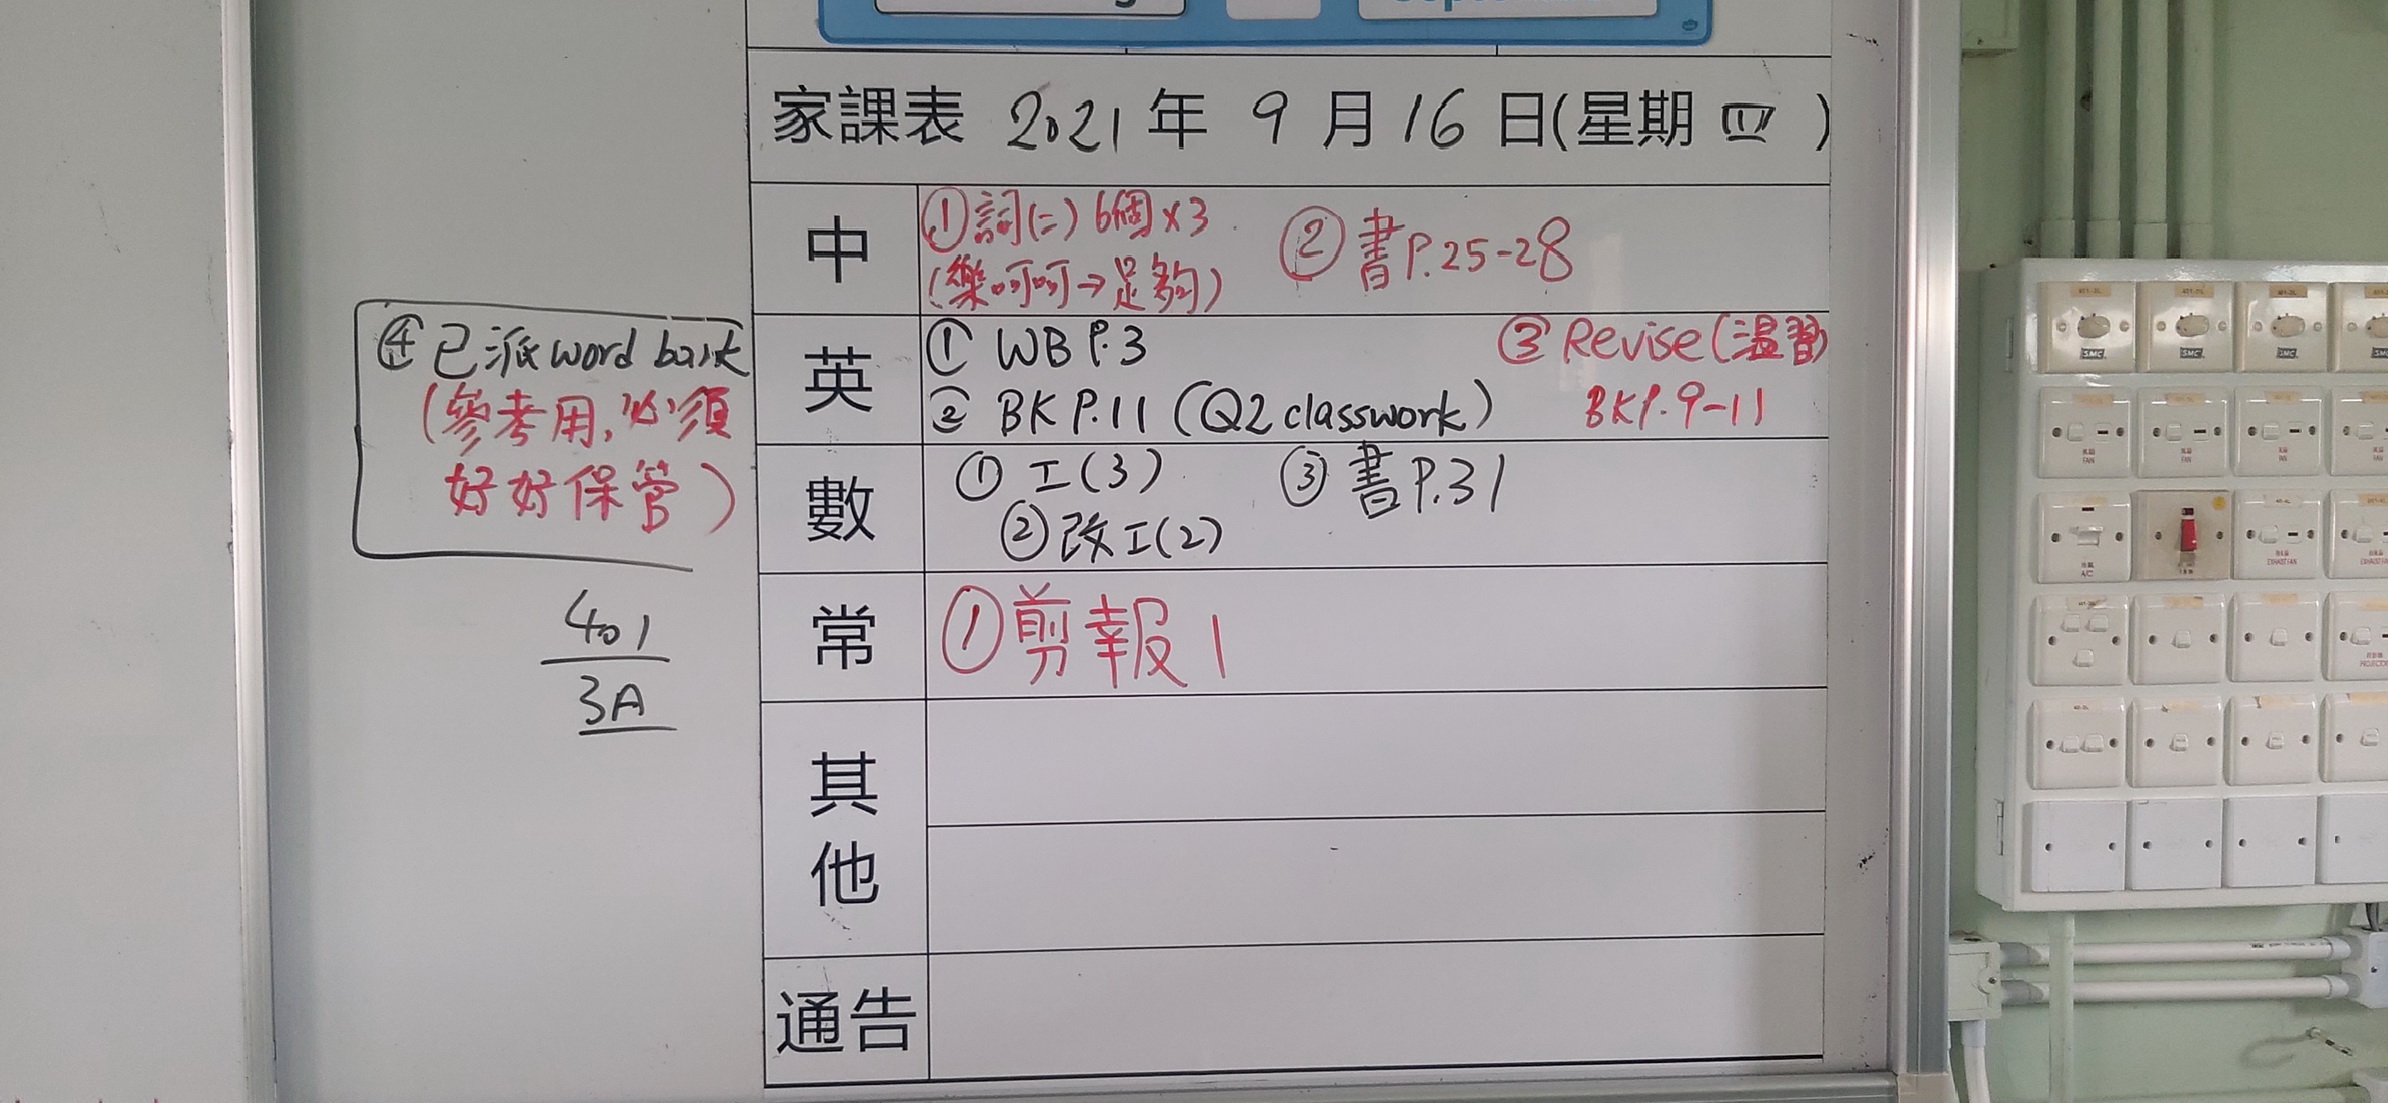 家課表 2021 年 9 月 16 日(星期 四 )
中
①詞(二) 6個×3
(樂呵呵→足夠)
②書P.25-28
英
① WB P.3
② BK P.11 (Q2 classwork)
③ Revise (溫習)
BK P.9-11
④已派word bank
(參考用,必須
好好保管)
數
① 工(3)
②改工(2)
③ 書P.31
常
①剪報1
401
3A
其他
通告
SMC
SMC
SMC
FAN
FAN
FAN
A/C
EXHAUST FAN